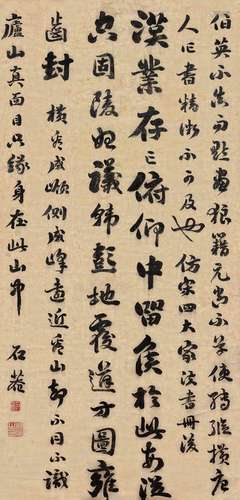 伯英不真而點畫狼籍元常不草使轉縱橫唐
人之書精微不可及也 仿宋四大家法書冊後
漢業存亡俯仰中留侯於此每從
容固陵始議韓彭地覆道方圖雍
齒封 橫看成嶺側成峰遠近看山都不同不識
廬山真面目只緣身在此山中 石菴